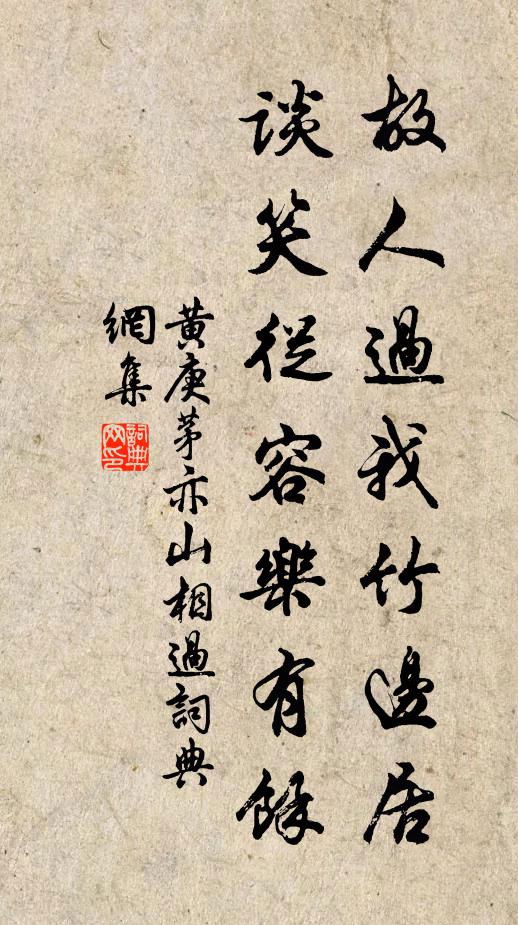 故人過我竹邊居
談笑從容樂有餘
黃庚茅亦山相過詞典
網集
詞典
网印